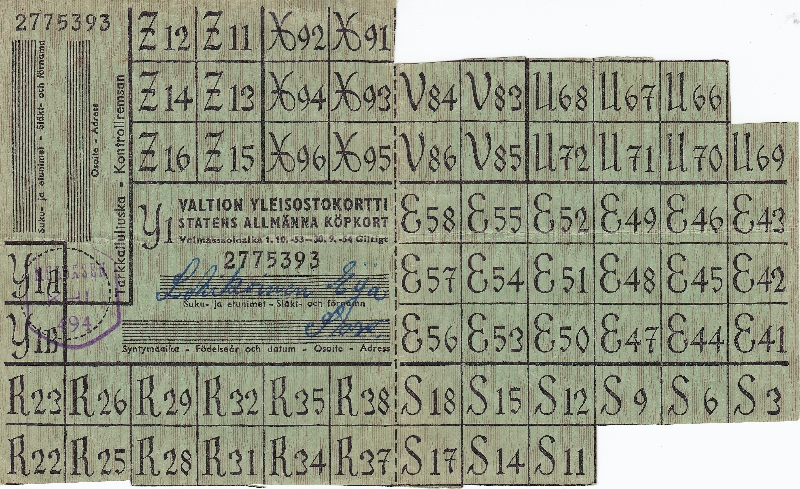 2775393
Suku- ja etunimet - Släkt- och förnamn
Osoite - Adress
Tarkkailuliuska - Kontrollremsan
Z 12 Z 11 X 92 X 91
Z 14 Z 13 X 94 X 93 V 84 V 83 U 68 U 67 U 66
Z 16 Z 15 X 96 X 95 V 86 V 85 U 72 U 71 U 70 U 69
Y1 VALTION YLEISOSTOKORTTI
STATENS ALLMÄNNA KÖPKORT
Voimassaoloaika 1. 10. -53—30. 9. -54 Giltig
2775393
Suku- ja etunimet - Släkt- och förnamn
Syntymäaika - Födelseår och datum - Osoite - Adress
E 58 E 55 E 52 E 49 E 46 E 43
Y1A E 57 E 54 E 51 E 48 E 45 E 42
494
Y1B E 56 E 53 E 50 E 47 E 44 E 41
R 23 R 26 R 29 R 32 R 35 R 38 S 18 S 15 S 12 S 9 S 6 S 3
R 22 R 25 R 28 R 31 R 34 R 37 S 17 S 14 S 11